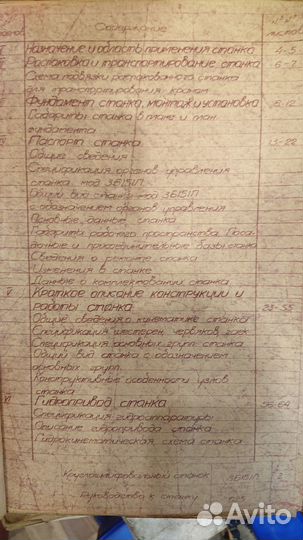 Содержание
№№ листов
I Назначение и область применения станка 4-5
II Распаковка и транспортирование станка 6-7
Схема подвязки распакованного станка
для транспортирования краном
Фундамент станка, монтаж и установка 8-12
Габариты станка в плане и план
фундамента
IV Паспорт станка 13-22
Общие сведения
Спецификация органов управления
станка мод 3Б151П
Общий вид станка мод 3Б151П
с обозначением органов управления
Основные данные станка
Габариты рабочего пространства. Поса-
дочные и присоединительные базы станка
Сведения о ремонте станка
Изменения в станке
Данные о комплектовании станка
V Краткое описание конструкции и
работы станка 23-55
Общие сведения и кинематика станка
Спецификация шестерен, червяков, гаек
Спецификация основных групп станка
Общий вид станка с обозначением
основных групп.
Конструктивные особенности узлов
станка
VI Гидропривод станка 56-64
Спецификация гидроаппаратуры
Описание гидропривода станка
Гидрокинематическая схема станка
Круглошлифовальный станок 3Б151П
Руководство к станку
Avito